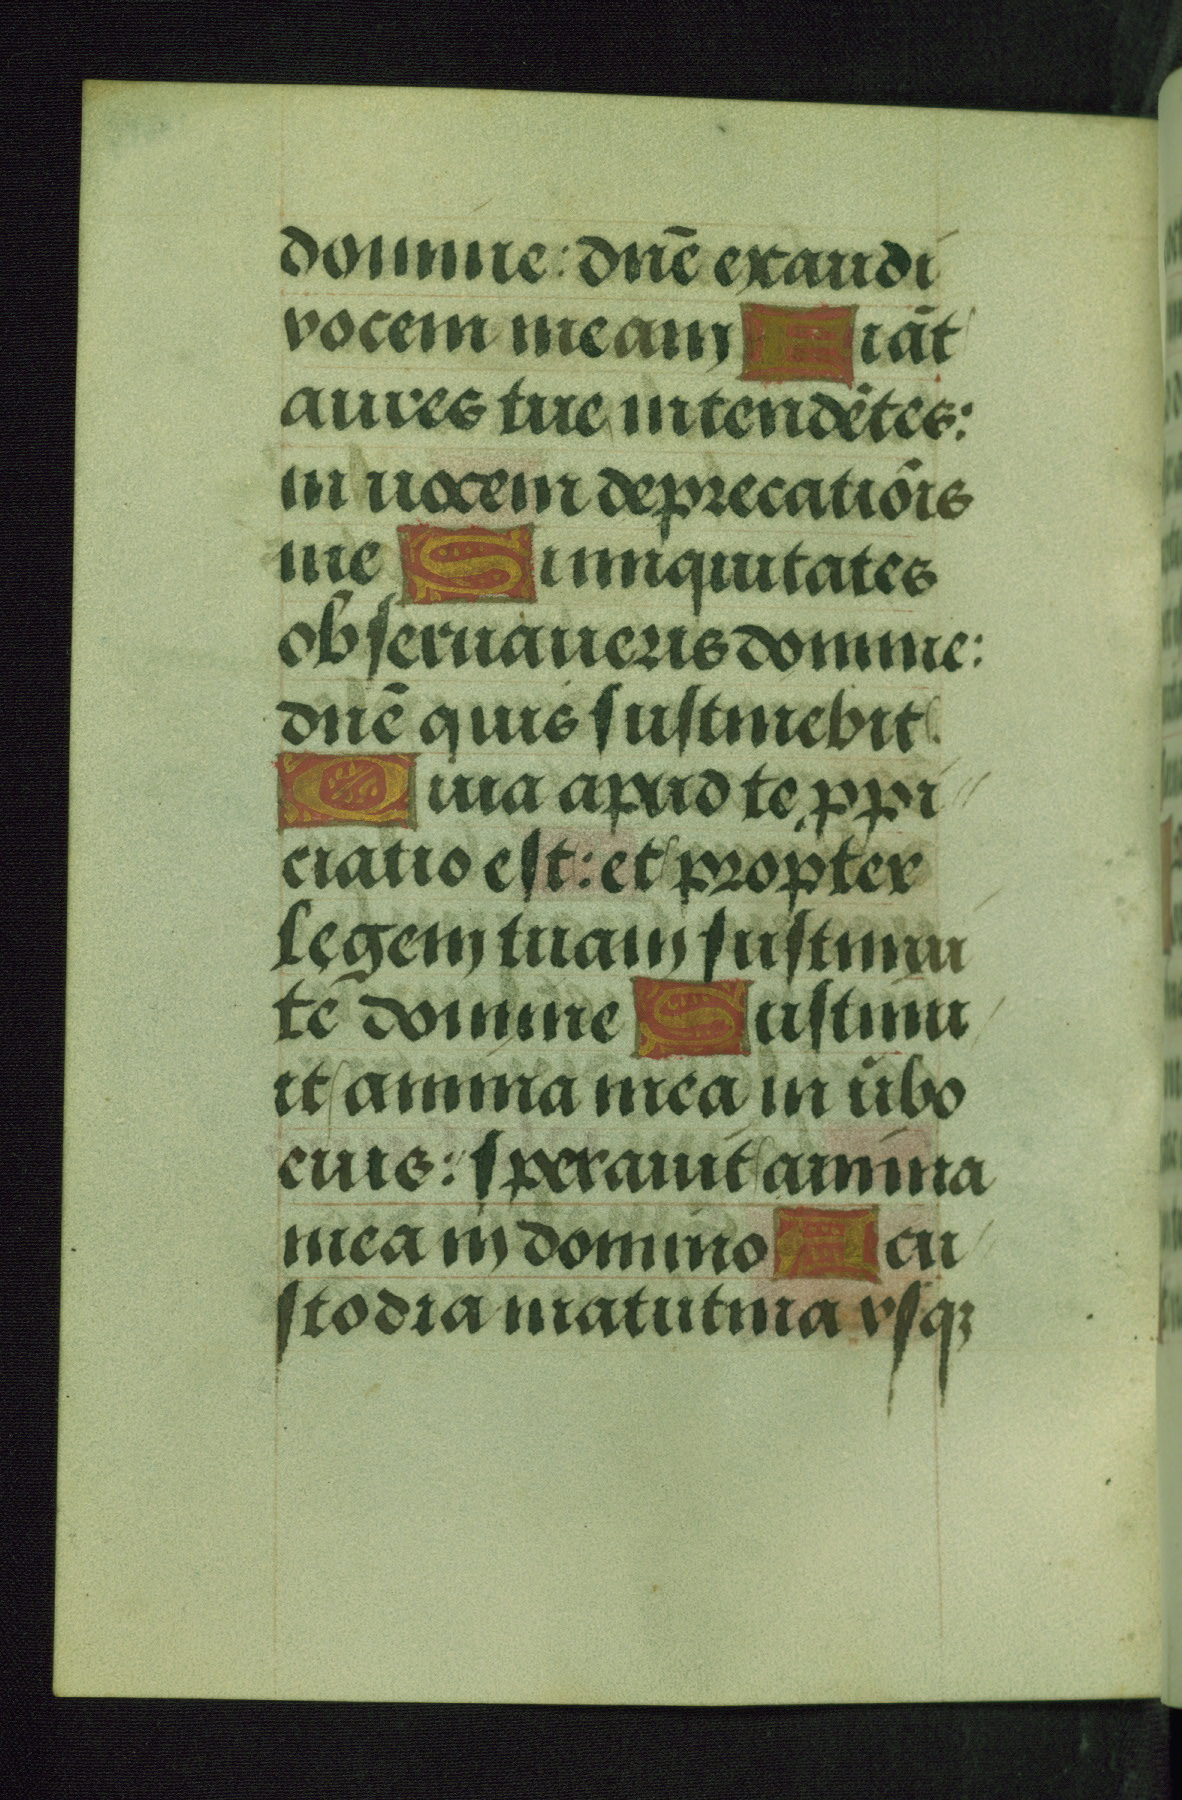 domine: dnē exaudi
vocem meam Fiāt
aures tue intendētes:
in uocem deprecatiōis
me Si iniquitates
obseruaueris domine:
dnē quis sustinebit
Quia apud te ꝓpi
ciatio est: et propter
legem tuam sustinui
tē domine Sustinu
it anima mea in ūbo
eius: sperauit anima
mea in domino A cu
stodia matutina vsqꝫ